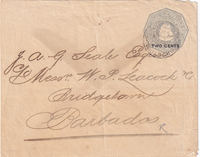 TWO CENTS
J. A. G. Seale Esqre
C/o Messrs W. P. Leacock & Co
Bridgetown
Barbados